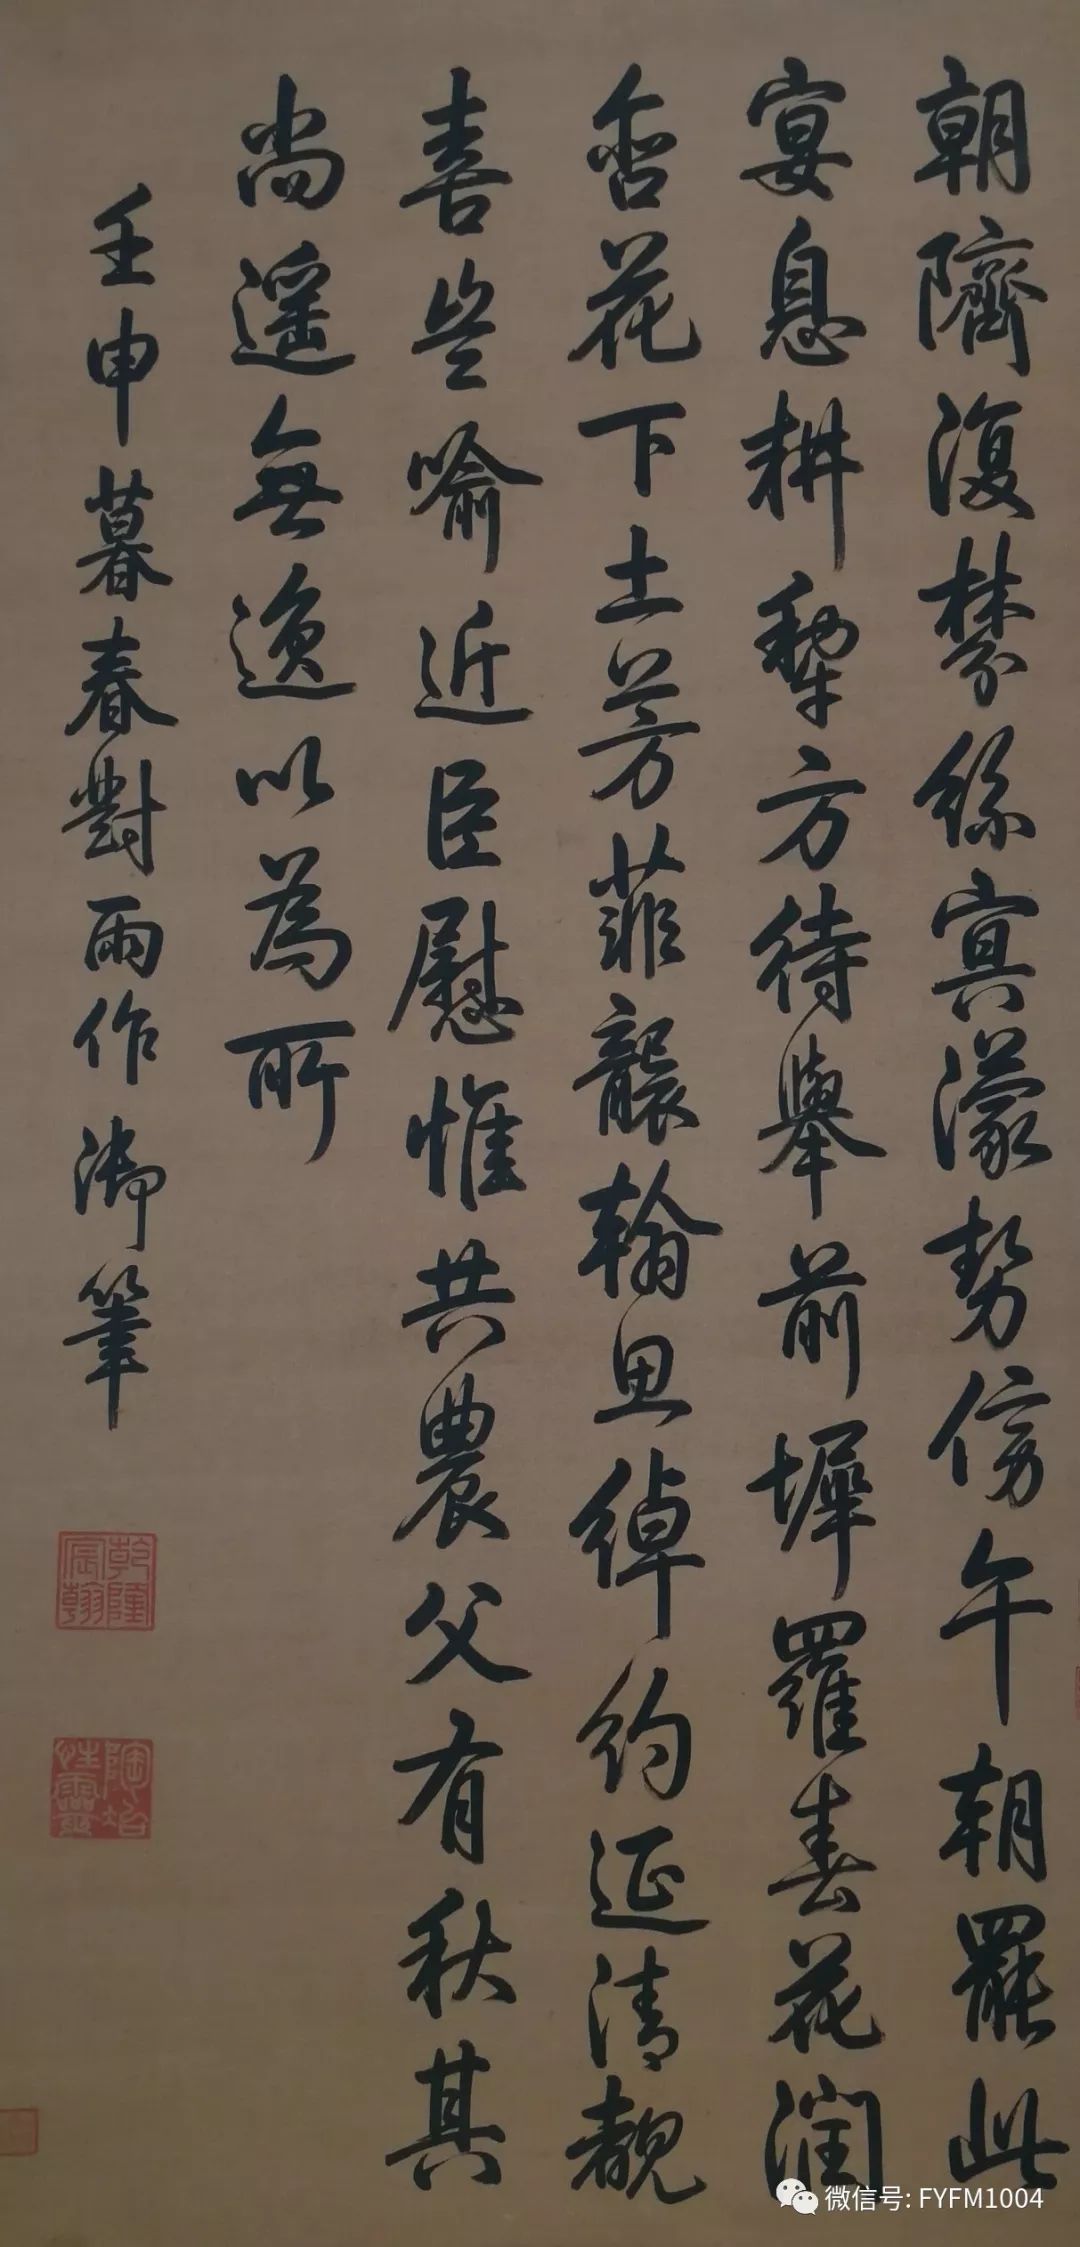 朝隮復棼絲冥濛勢傍午朝罷此
宴息耕犁方待舉前墀羅春花潤
否花下土芳菲襲翰思綽約延清覩
喜豈喻近臣慰惟共農父有秋其
尚遥無逸以為所
壬申暮春對雨作御筆
乾隆宸翰
陶冶性靈
微信号: FYFM1004